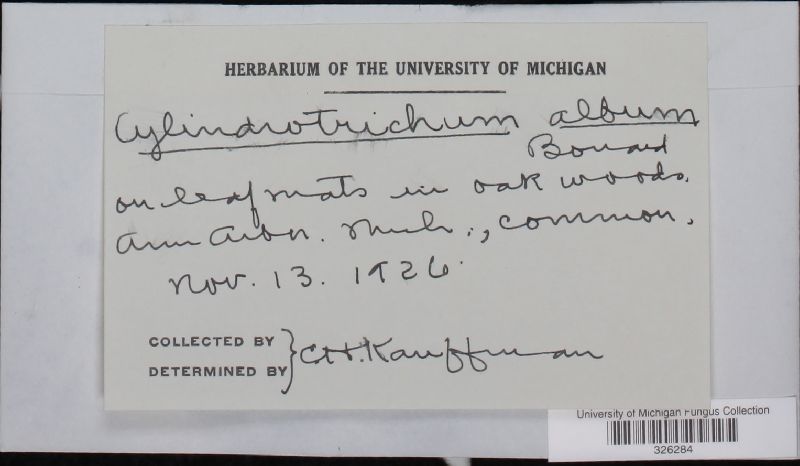 HERBARIUM OF THE UNIVERSITY OF MICHIGAN
Cylindrotrichum album
Bonord
on leaf mats in oak woods.
Ann Arbor. Mich., common.
Nov. 13. 1926.
COLLECTED BY
DETERMINED BY } C.H. Kauffman
University of Michigan Fungus Collection
326284